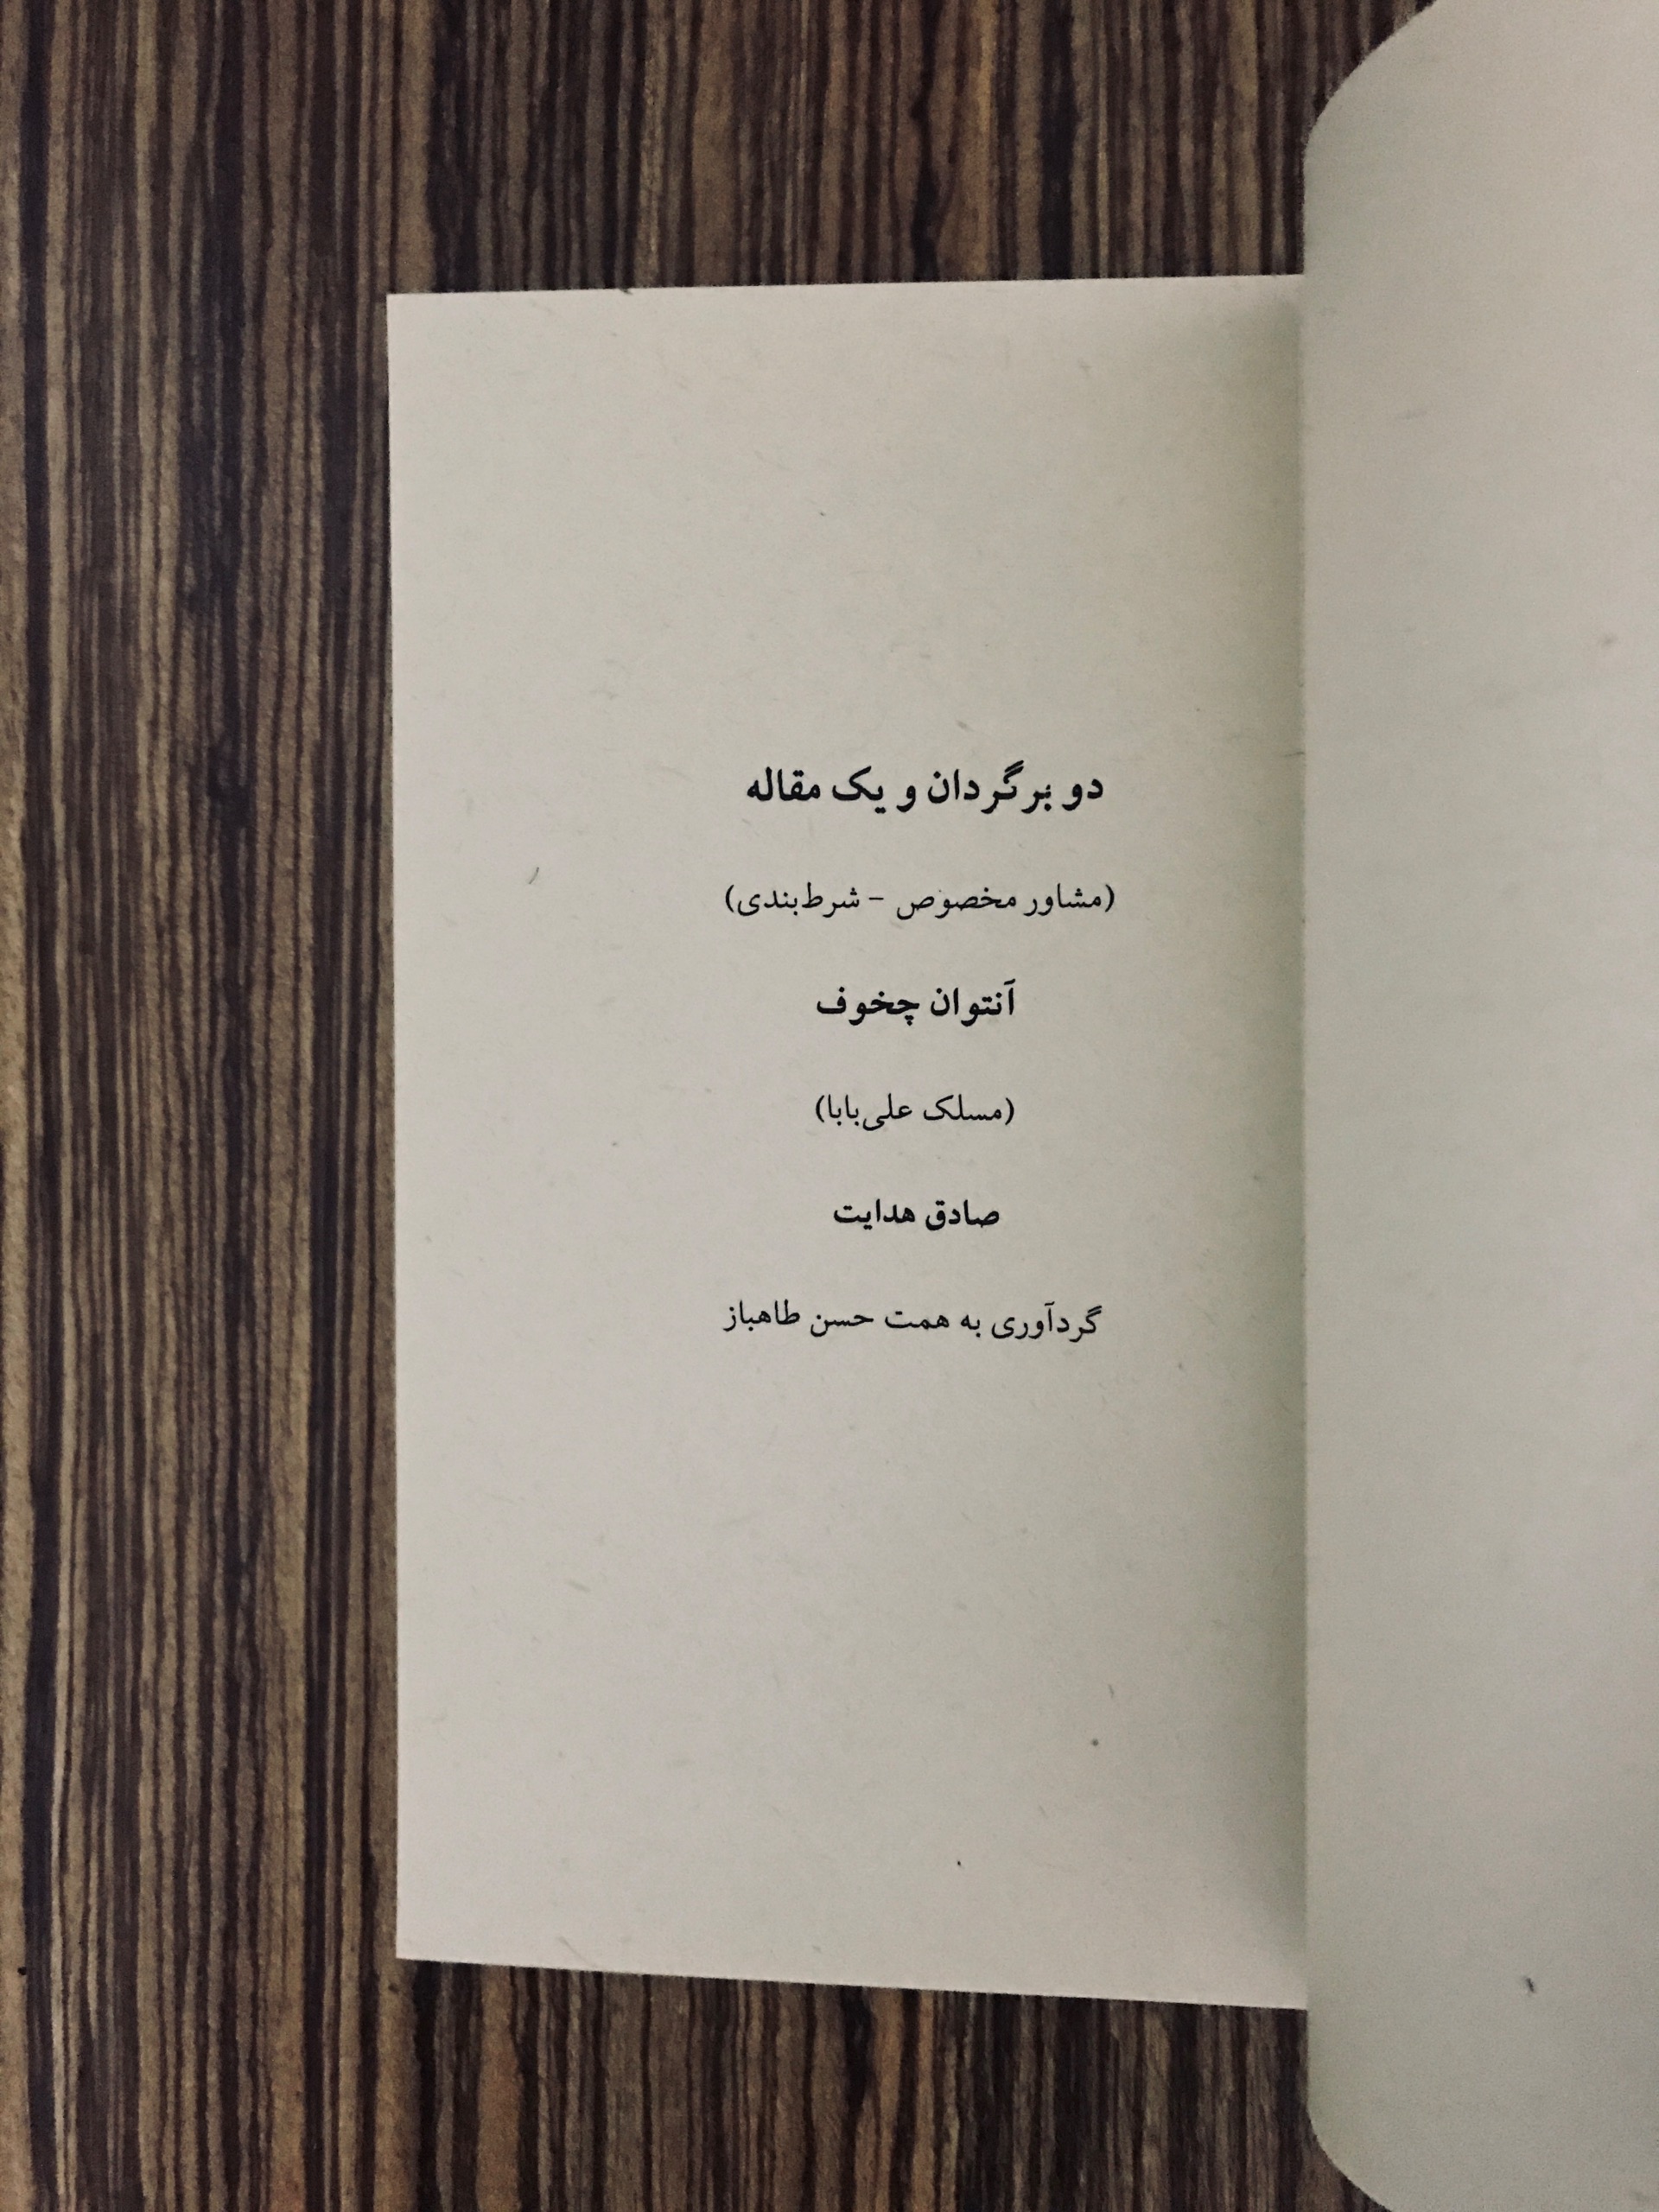 دو برگردان و یک مقاله
(مشاور مخصوص - شرط‌بندی)
آنتوان چخوف
(مسلک علی‌بابا)
صادق هدایت
گردآوری به همت حسن طاهباز